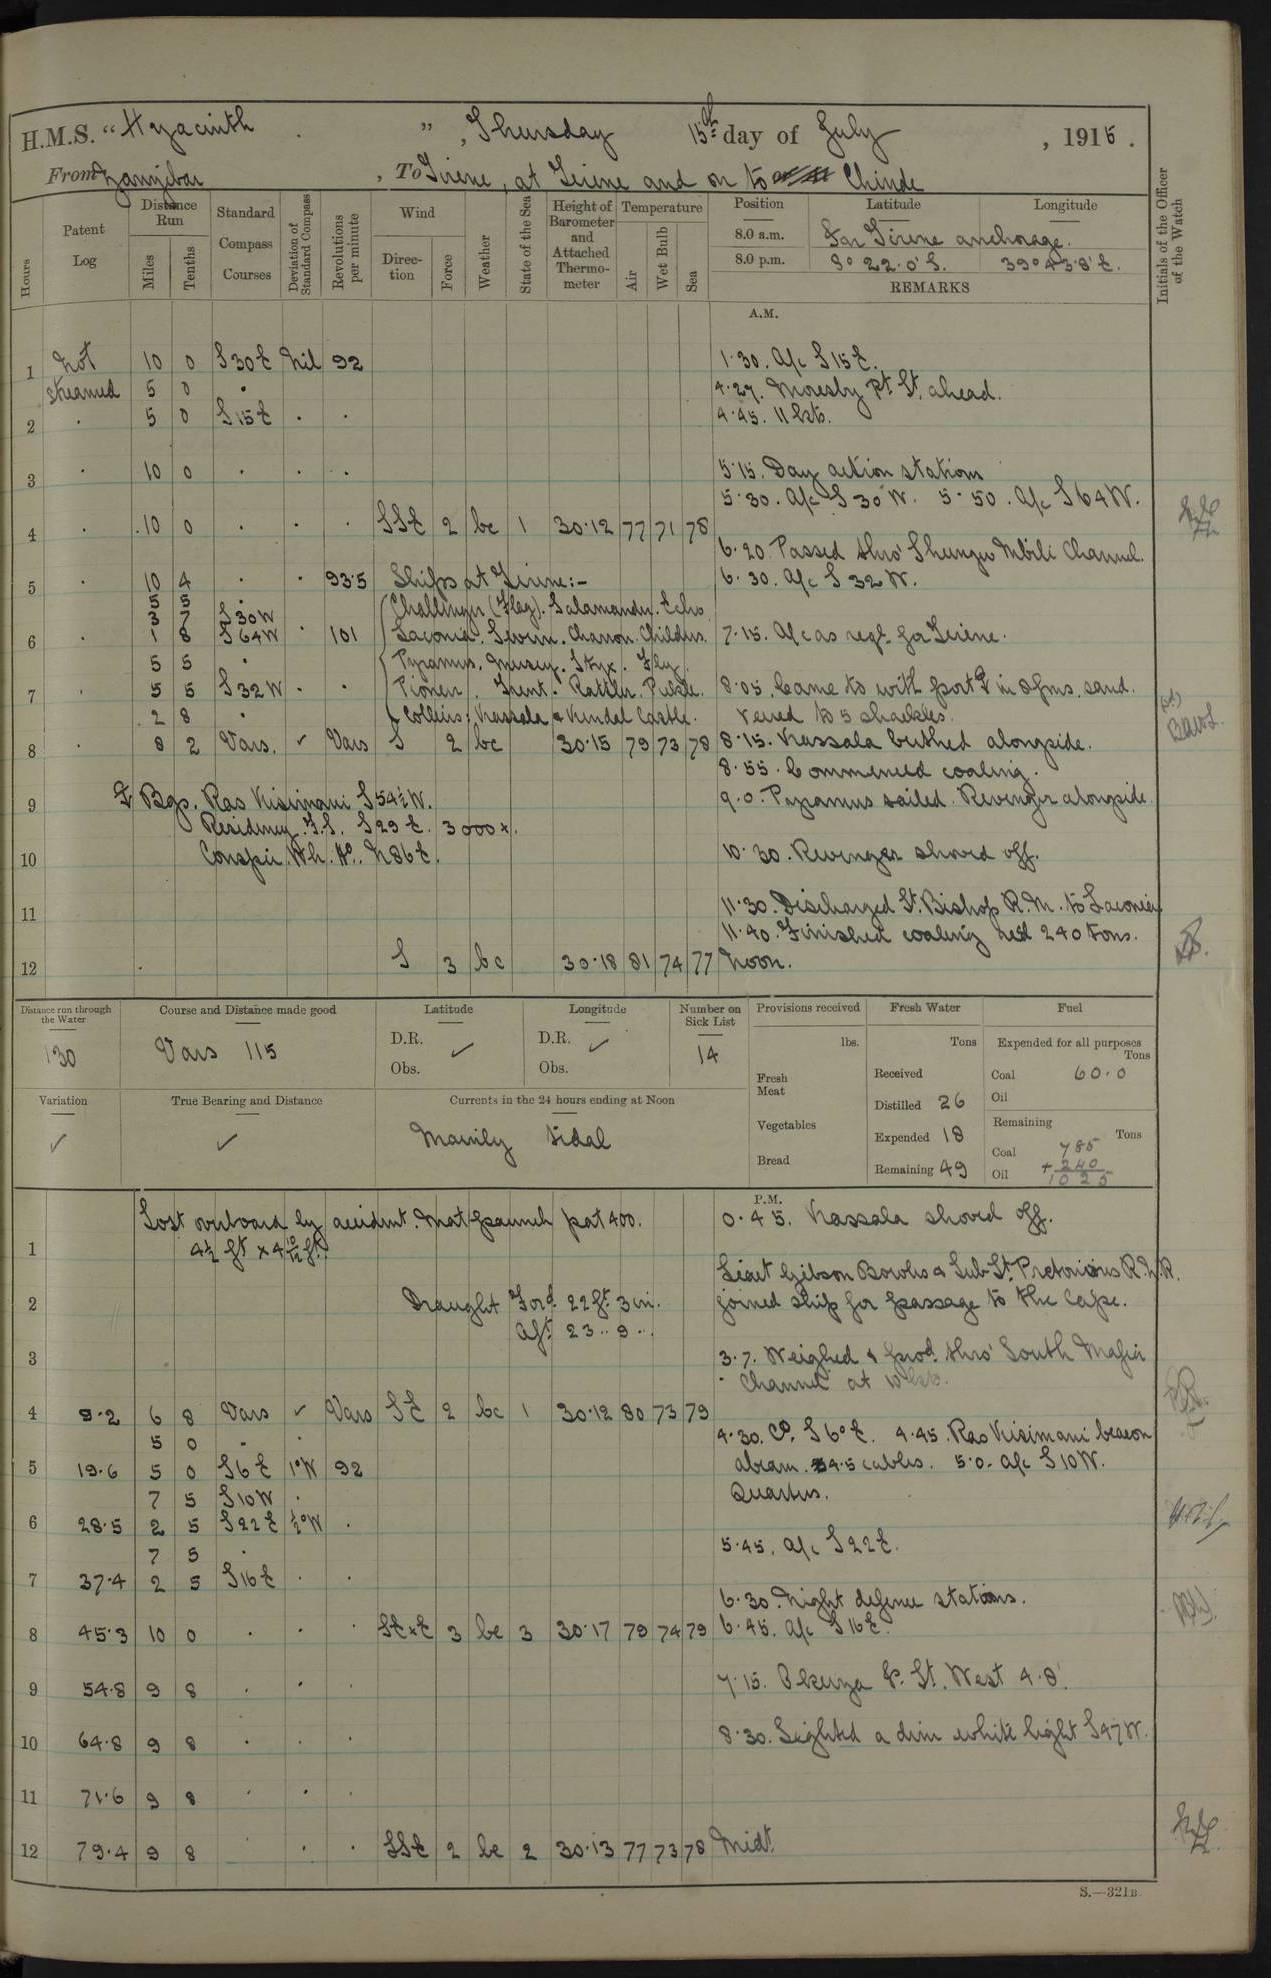 H.M.S. "Hyacinth", Thursday 15th day of July, 1915.
From Zanzibar, To Tirene, at Tirene and on to Chinde
Hours
Patent Log
Distance Run
Miles
Tenths
Standard Compass Courses
Deviation of Standard Compass
Revolutions per minute
Wind
Direction
Force
Weather
State of the Sea
Height of Barometer and Attached Thermometer
Temperature
Air
Wet Bulb
Sea
Position
Latitude
Longitude
8.0 a.m. For Tirene anchorage.
8.0 p.m. 9° 22.0' S. 39° 43.8' E.
REMARKS
Initials of the Officer of the Watch
A.M.
1 Not 10 0 S 30 E Nil 92 1.30. A/c S 15 E.
streamed 5 0 . 4.27. Moresby Pt Lt. ahead.
2 . 5 0 S 15 E . . 4.45. 11 kts.
3 . 10 0 . . . 5.15. Day action stations
5.30. A/c S 30 W. 5.50. A/c S 64 W.
4 . 10 0 . . . SSE 2 bc 1 30.12 77 71 78
6.20. Passed thro' Shungu Mbili Channel.
5 . 10 4 . . 93.5 Ships at Tirene:- 6.30. A/c S 32 W.
5 5 . Challenger (Flag). Salamander. Echo
3 7 S 30 W
6 . 1 8 S 64 W . 101 Laconia. Severn. Charon. Childers. 7.15. A/c as reqd. for Tirene.
5 5 . Pyramus. Mersey. Styx. Fly.
7 . 5 5 S 32 W . . Pioneer. Trent. Rattler. Pickle. 8.05. Came to with port ⚓ in 8 fms. sand.
2 8 . Collins; Kassala & Kendal Castle. Veered to 5 shackles.
8 . 8 2 Vars. ✓ Vars S 2 bc 30.15 79 73 78 8.15. Kassala berthed alongside.
8.55. Commenced coaling.
9 ⚓ Bgs. Ras Kisimani S 54½ W. 9.0. Pyramus sailed. Revenger alongside.
Residency F.S. S 29 E. 3000 x.
10 Conspic. Wh. Ho. N 86 E. 10.30. Revenger shoved off.
11 11.30. Discharged Lt. Bishop R.M. to Laconia
11.40. Finished coaling recd 240 tons.
12 . S 3 bc 30.18 81 74 77 Noon.
Distance run through the Water
130
Course and Distance made good
Vars 115
Latitude
D.R. ✓
Obs.
Longitude
D.R. ✓
Obs.
Number on Sick List
14
Provisions received
lbs.
Fresh Meat
Vegetables
Bread
Fresh Water
Tons
Received
Distilled 26
Expended 18
Remaining 49
Fuel
Expended for all purposes
Tons
Coal 60.0
Oil
Remaining
Tons
Coal 785
Oil + 240
1025
Variation
✓
True Bearing and Distance
✓
Currents in the 24 hours ending at Noon
Mainly tidal
P.M.
Lost overboard by accident. Mat paunch pat 400. 0.45. Kassala shoved off.
1 4½ ft x 4 10/12 ft.
Lieut Gibson Bowles & Sub-Lt. Pretorious R.N.R.
2 Draught Ford. 22 ft. 3 in. joined ship for passage to the Cape.
Aft 23 .. 9 ..
3 3.7. Weighed & procd. thro' South Mafia
Channel at 10 kts.
4 9.2 6 8 Vars ✓ Vars SE 2 bc 1 30.12 80 73 79
5 0 . . 4.30. Co. S 6° E. 4.45. Ras Kisimani beacon
5 19.6 5 0 S 6 E 1°W 92 abeam. 4.5 cables. 5.0. A/c S 10 W.
7 5 S 10 W . Quarters.
6 28.5 2 5 S 22 E ½°W .
7 5 . 5.45. A/c S 22 E.
7 37.4 2 5 S 16 E . .
6.30. Night defence stations.
8 45.3 10 0 . . . SE x E 3 bc 3 30.17 79 74 79 6.45. A/c S 16 E.
9 54.8 9 8 . . . 7.15. Okuza Id. Lt. West 4.8'.
10 64.8 9 8 . . . 8.30. Sighted a dim white light S 47 W.
11 71.6 9 8 . . .
12 79.4 9 8 . . . SSE 2 bc 2 30.13 77 73 78 Midt.
S.—321B